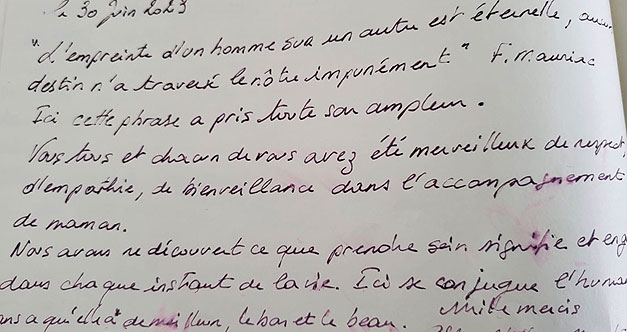 le 30 juin 2023
"L'empreinte d'un homme sur un autre est éternelle, aucun
destin n'a traversé le nôtre impunément" F. Mauriac
Ici cette phrase a pris toute son ampleur.
Vous tous et chacun de vous avez été merveilleux de respect,
d'empathie, de bienveillance dans l'accompagnement
de maman.
Nous avons redécouvert ce que prendre soin signifie et eng
dans chaque instant de la vie. Ici se conjugue l'huma
ns a qu'elle a de meilleur, le bon et le beau. Mille mercis